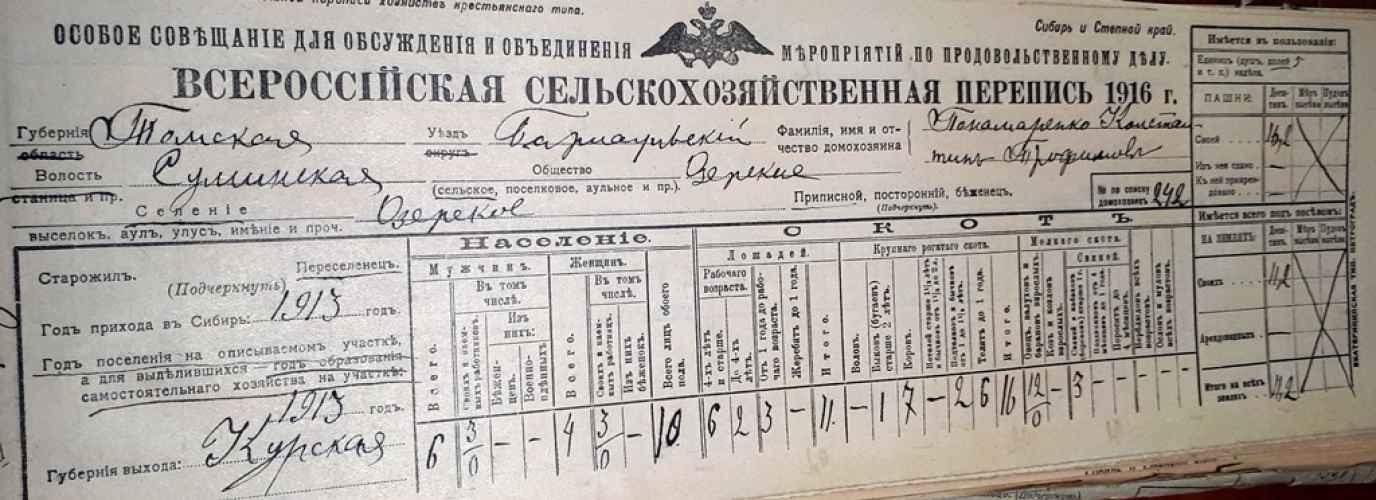 переписи хозяйствъ крестьянскаго типа.
Сибирь и Степной край.
ОСОБОЕ СОВѢЩАНІЕ ДЛЯ ОБСУЖДЕНІЯ И ОБЪЕДИНЕНІЯ МѢРОПРІЯТІЙ ПО ПРОДОВОЛЬСТВЕННОМУ ДѢЛУ.
ВСЕРОССІЙСКАЯ СЕЛЬСКОХОЗЯЙСТВЕННАЯ ПЕРЕПИСЬ 1916 г.
Губернія Томская Уѣздъ Барнаульскій Фамилія, имя и от- Понамаренко Констан
область округъ чество домохозяина тинъ Трофимовъ
Волость Сулинская Общество Озерские
станица и пр. (сельское, поселковое, аульное и пр.) Приписной, посторонній, бѣженецъ.
(Подчеркнуть).
№ по списку домохозяевъ 242
Селеніе Озерское
выселокъ, аулъ, улусъ, имѣніе и проч.
Старожилъ. Переселенецъ.
(Подчеркнуть)
Годъ прихода въ Сибирь: 1913 годъ.
Годъ поселенія на описываемомъ участкѣ,
а для выдѣлившихся годъ образованія
самостоятельнаго хозяйства на участкѣ:
1913 годъ.
Губернія выхода: Курская
Населеніе.
Мужчинъ. Женщинъ.
Всего.
Въ томъ числѣ.
Своихъ и наемныхъ работниковъ.
Изъ нихъ:
Бѣженцевъ.
Военноплѣнныхъ.
Всего.
Въ томъ числѣ.
Своихъ и наемныхъ работницъ.
Изъ нихъ бѣженокъ.
Всего лицъ обоего пола.
6 3/0 - - 4 3/0 - 10
СКОТЪ.
Лошадей.
Рабочаго возраста.
4-хъ лѣтъ и старше.
До 4-хъ лѣтъ.
Отъ 1 года до рабочаго возраста.
Жеребятъ до 1 года.
Итого.
6 2 3 - 11.
Крупнаго рогатаго скота.
Воловъ.
Быковъ (бугаевъ) старше 2 лѣтъ.
Коровъ.
Телятъ до 1 года.
Итого.
- 1 7 - 2 6 16
Мелкаго скота.
Свиней.
12/0 - 3 - - - -
Имѣется въ пользованіи:
Единицъ (душ. долей 5
и т. п.) надѣла.
ПАШНИ: Десятинъ.
Своей
Изъ нея сдано
Имѣется всего подъ посѣвомъ:
НА ЗЕМЛЯХЪ: Десятинъ.
Своихъ
Арендованныхъ
Итого на всѣхъ земляхъ
ЕКАТЕРИНИНСКАЯ ТИП. ПЕТРОГРАДЪ